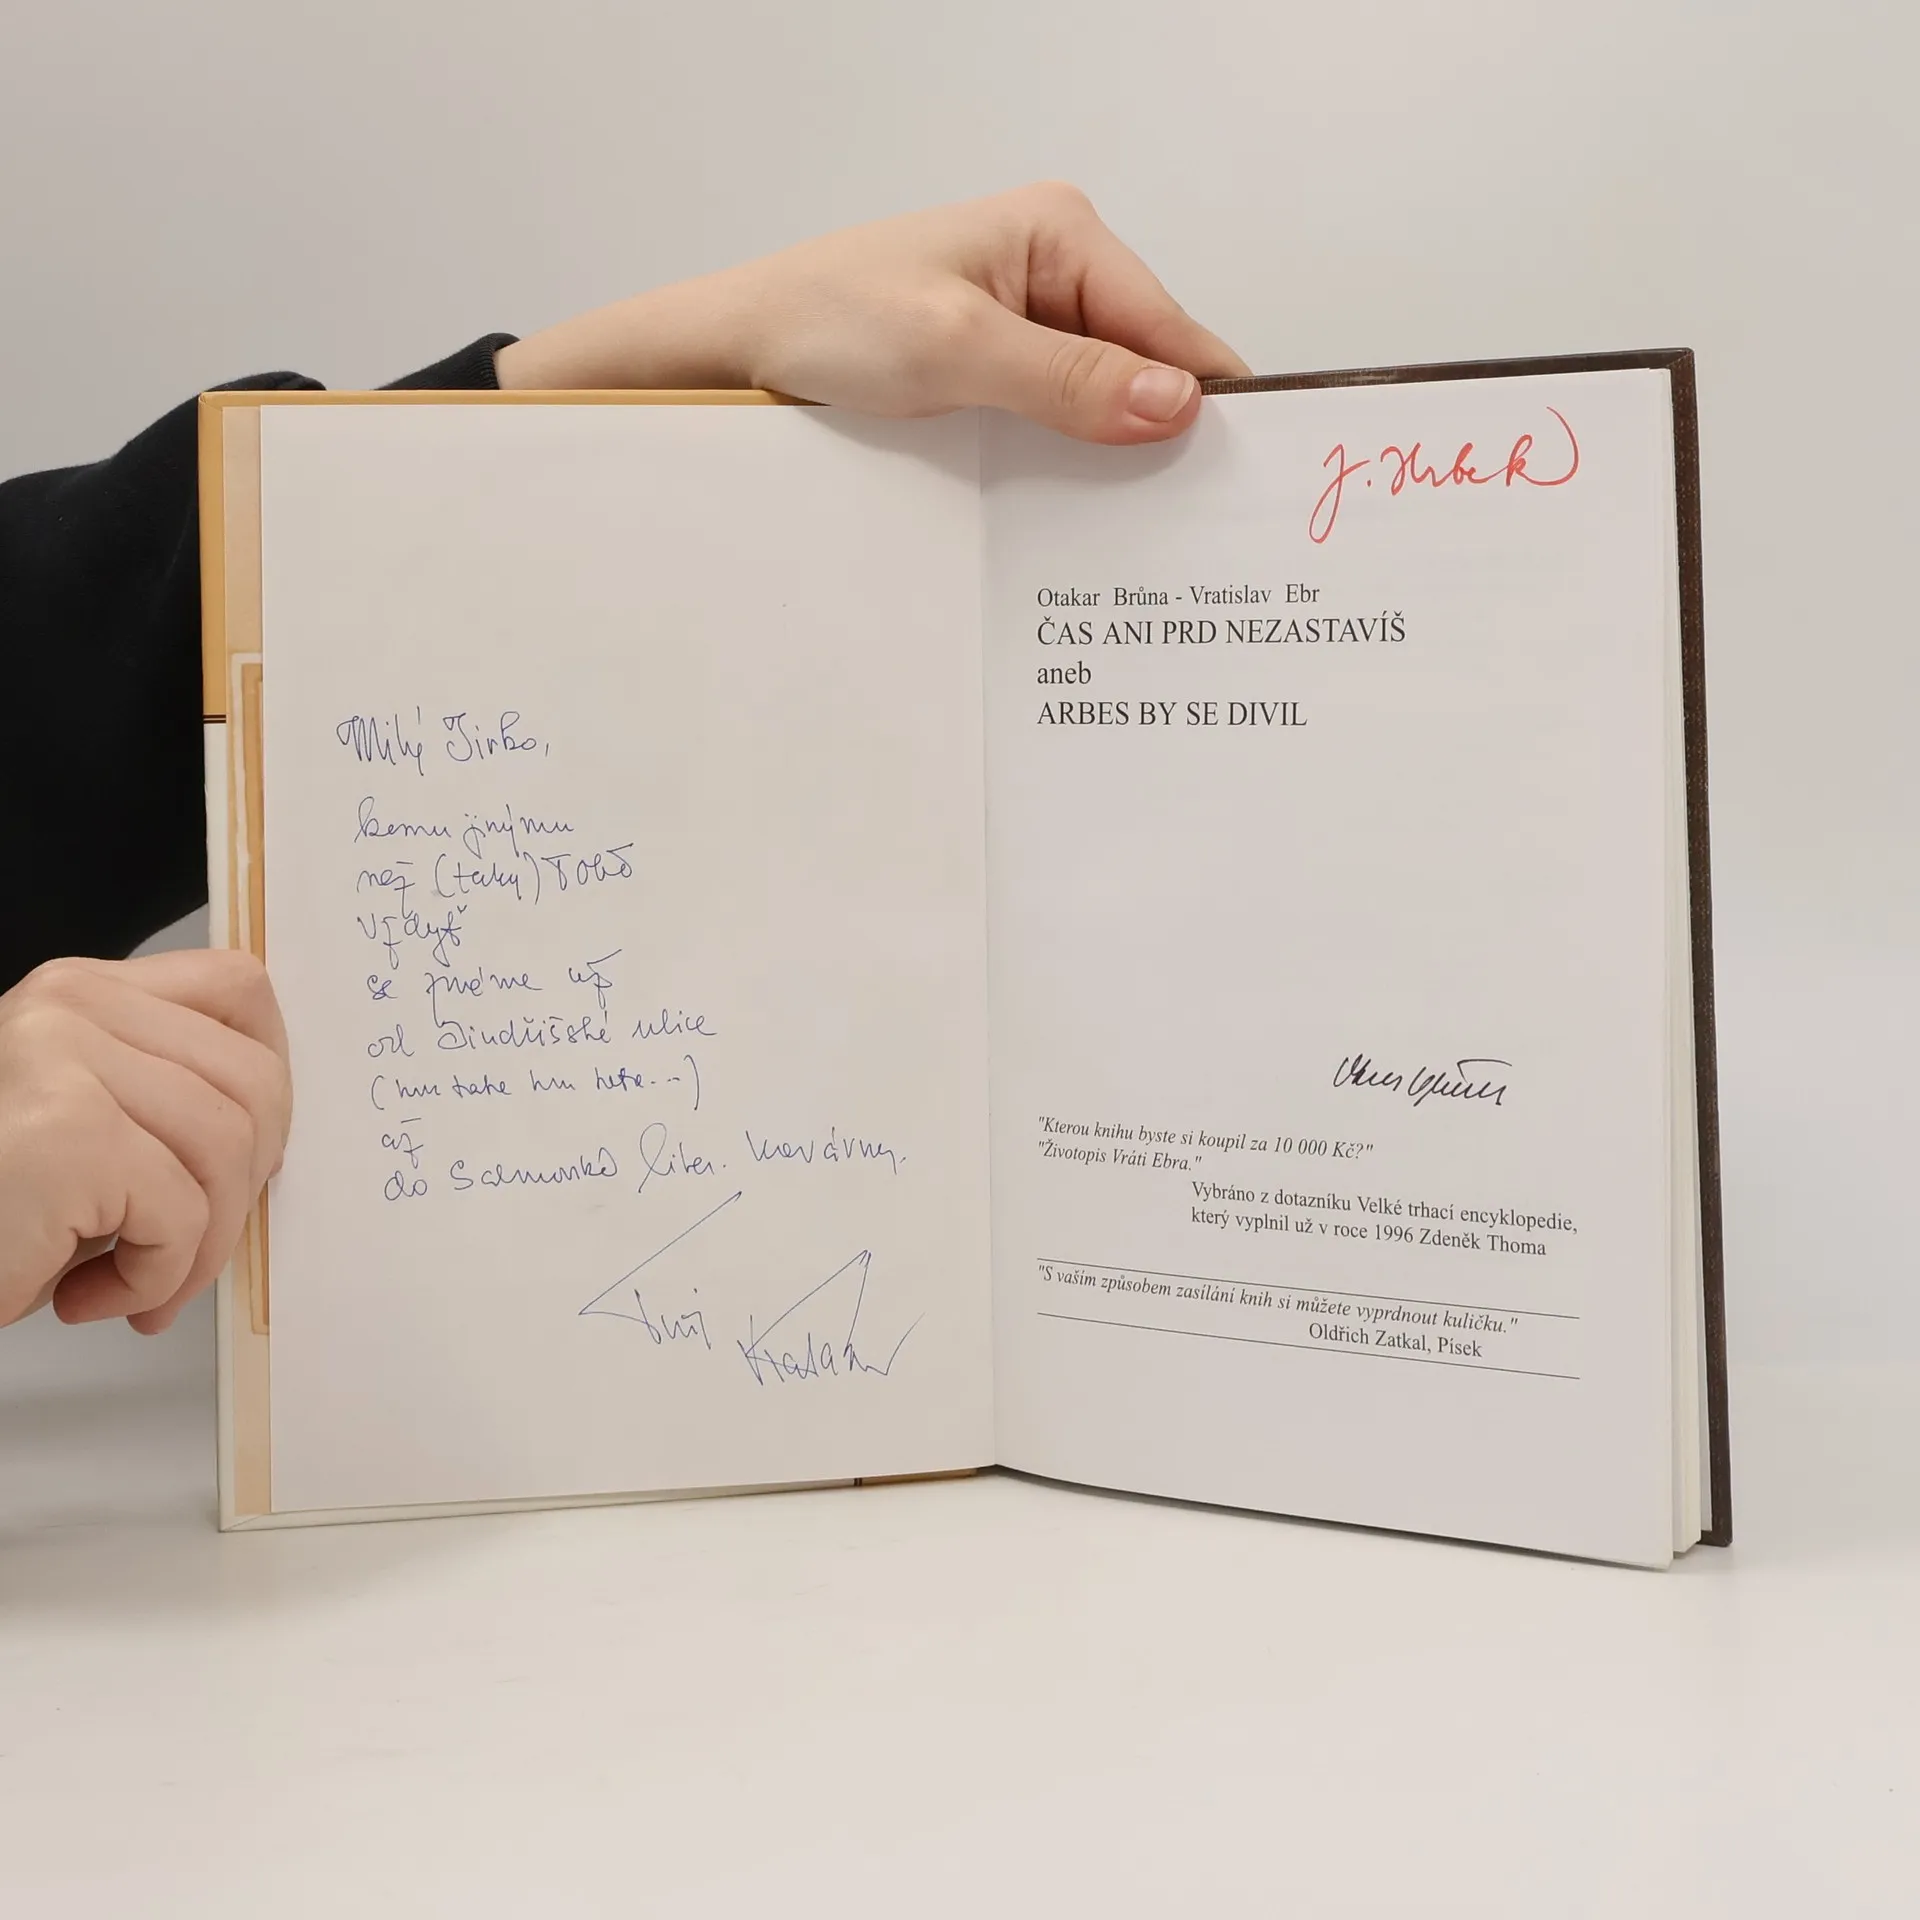 Milý Jirko,
kemu jinýmu
než (taky) Tobě
Vždyť
se známe už
od Jindřišské ulice
(hm take hm hete...)
až
do Salmovské liter. kavárny.
Tvůj
J. Hrbek
Otakar Brůna - Vratislav Ebr
ČAS ANI PRD NEZASTAVÍŠ
aneb
ARBES BY SE DIVIL
"Kterou knihu byste si koupil za 10 000 Kč?"
"Životopis Vráti Ebra."
Vybráno z dotazníku Velké trhací encyklopedie,
který vyplnil už v roce 1996 Zdeněk Thoma
"S vaším způsobem zasílání knih si můžete vyprdnout kuličku."
Oldřich Zatkal, Písek